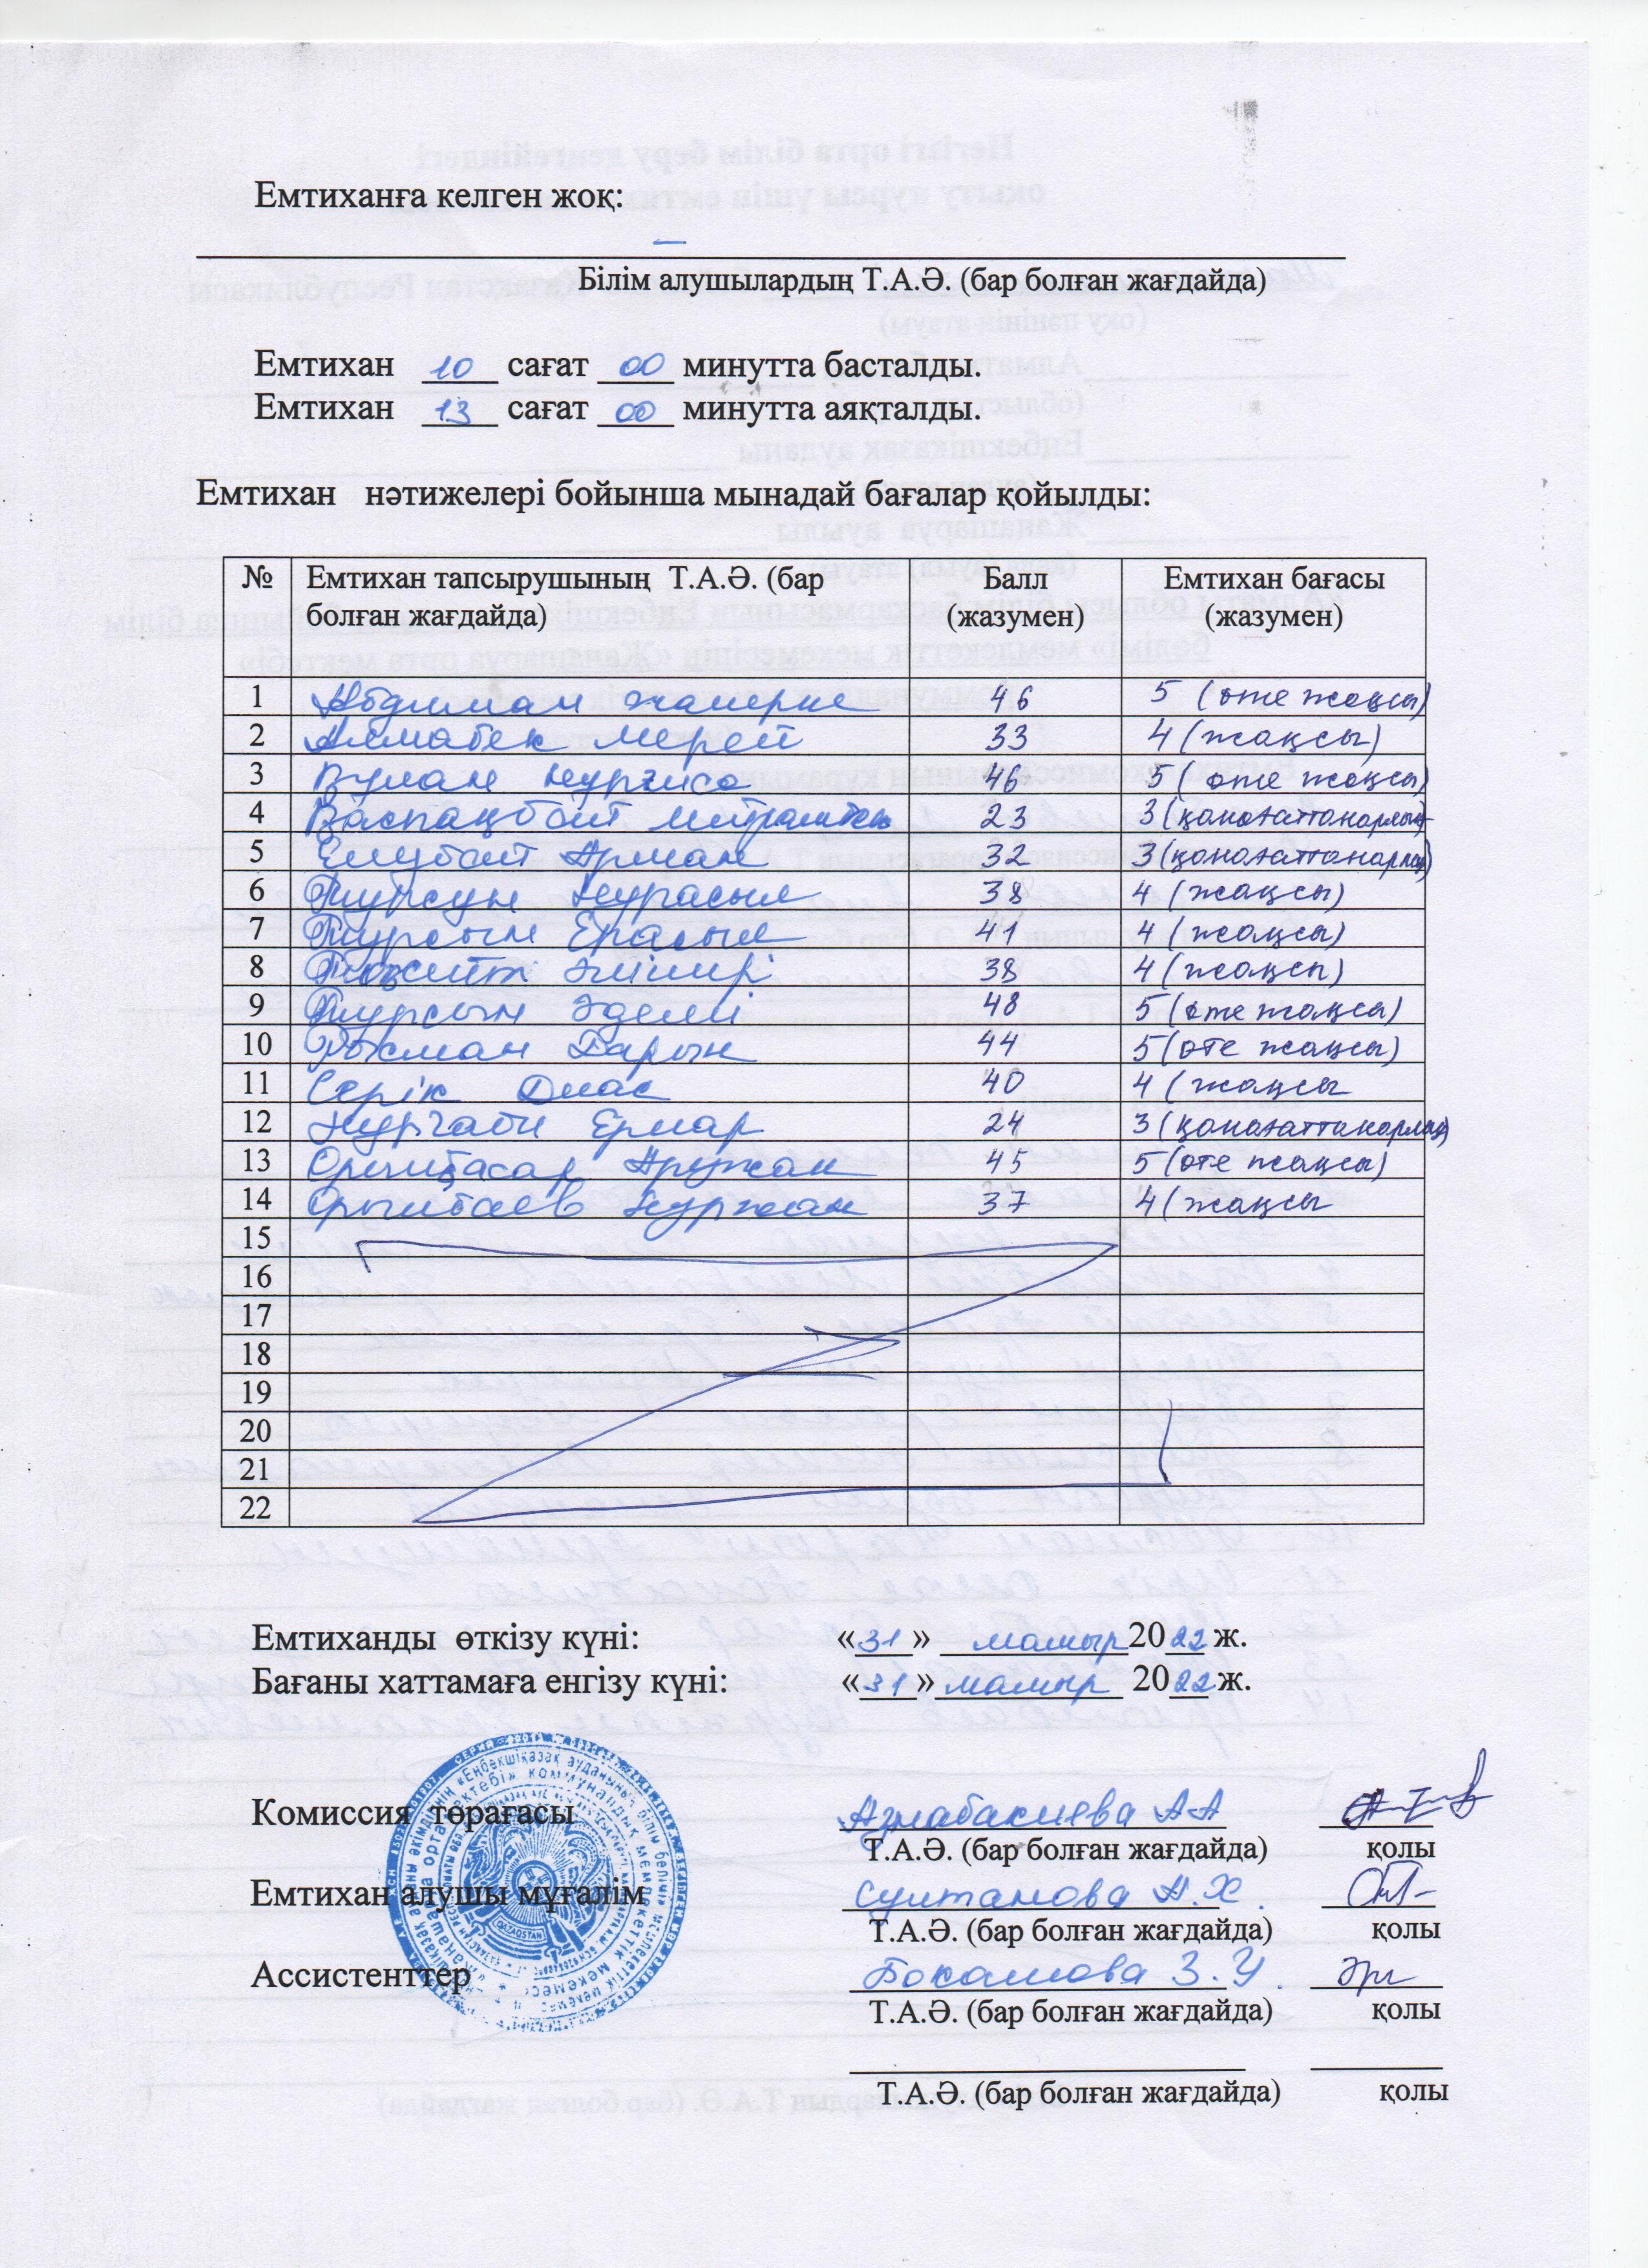 Емтиханға келген жоқ:
—
Білім алушылардың Т.А.Ә. (бар болған жағдайда)
Емтихан 10 сағат 00 минутта басталды.
Емтихан 13 сағат 00 минутта аяқталды.
Емтихан нәтижелері бойынша мынадай бағалар қойылды:
№ Емтихан тапсырушының Т.А.Ә. (бар болған жағдайда) Балл (жазумен) Емтихан бағасы (жазумен)
1 46 5 (өте жақсы)
2 Алмабек Мерей 33 4 (жақсы)
3 46 5 (өте жақсы)
4 23 3 (қанағаттанарлық)
5 Елубай Арман 32 3 (қанағаттанарлық)
6 Тұрсұн Нұрасыл 38 4 (жақсы)
7 Тұрсын Ерасыл 41 4 (жақсы)
8 38 4 (жақсы)
9 Тұрсын Әделі 48 5 (өте жақсы)
10 Дарын 44 5 (өте жақсы)
11 Серік Диас 40 4 (жақсы
12 24 3 (қанағаттанарлық)
13 Орынбасар Аружан 45 5 (өте жақсы)
14 Орынбаев Нұржан 37 4 (жақсы
15
16
17
18
19
20
21
22
Емтиханды өткізу күні: «31» мамыр 2022 ж.
Бағаны хаттамаға енгізу күні: «31» мамыр 2022 ж.
Комиссия төрағасы А А
Т.А.Ә. (бар болған жағдайда) қолы
Емтихан алушы мұғалім Султанова Н.Х.
Т.А.Ә. (бар болған жағдайда) қолы
Ассистенттер З.У.
Т.А.Ә. (бар болған жағдайда) қолы
Т.А.Ә. (бар болған жағдайда) қолы
QAZAQSTAN